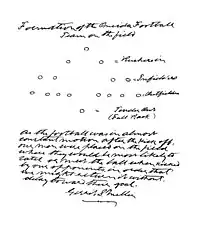 Formation of the Oneida Football
Team on the field
= Rushers in
= Infielders
= Outfielders
= Tender Out
(Full Back)
As the football was in almost
constant motion after the kick off.
our men were placed on the field
where they would be most likely to
catch or meet the ball when kicked
by our opponents in order that
we might return it without
delay toward their goal.
Gerrit S. Miller